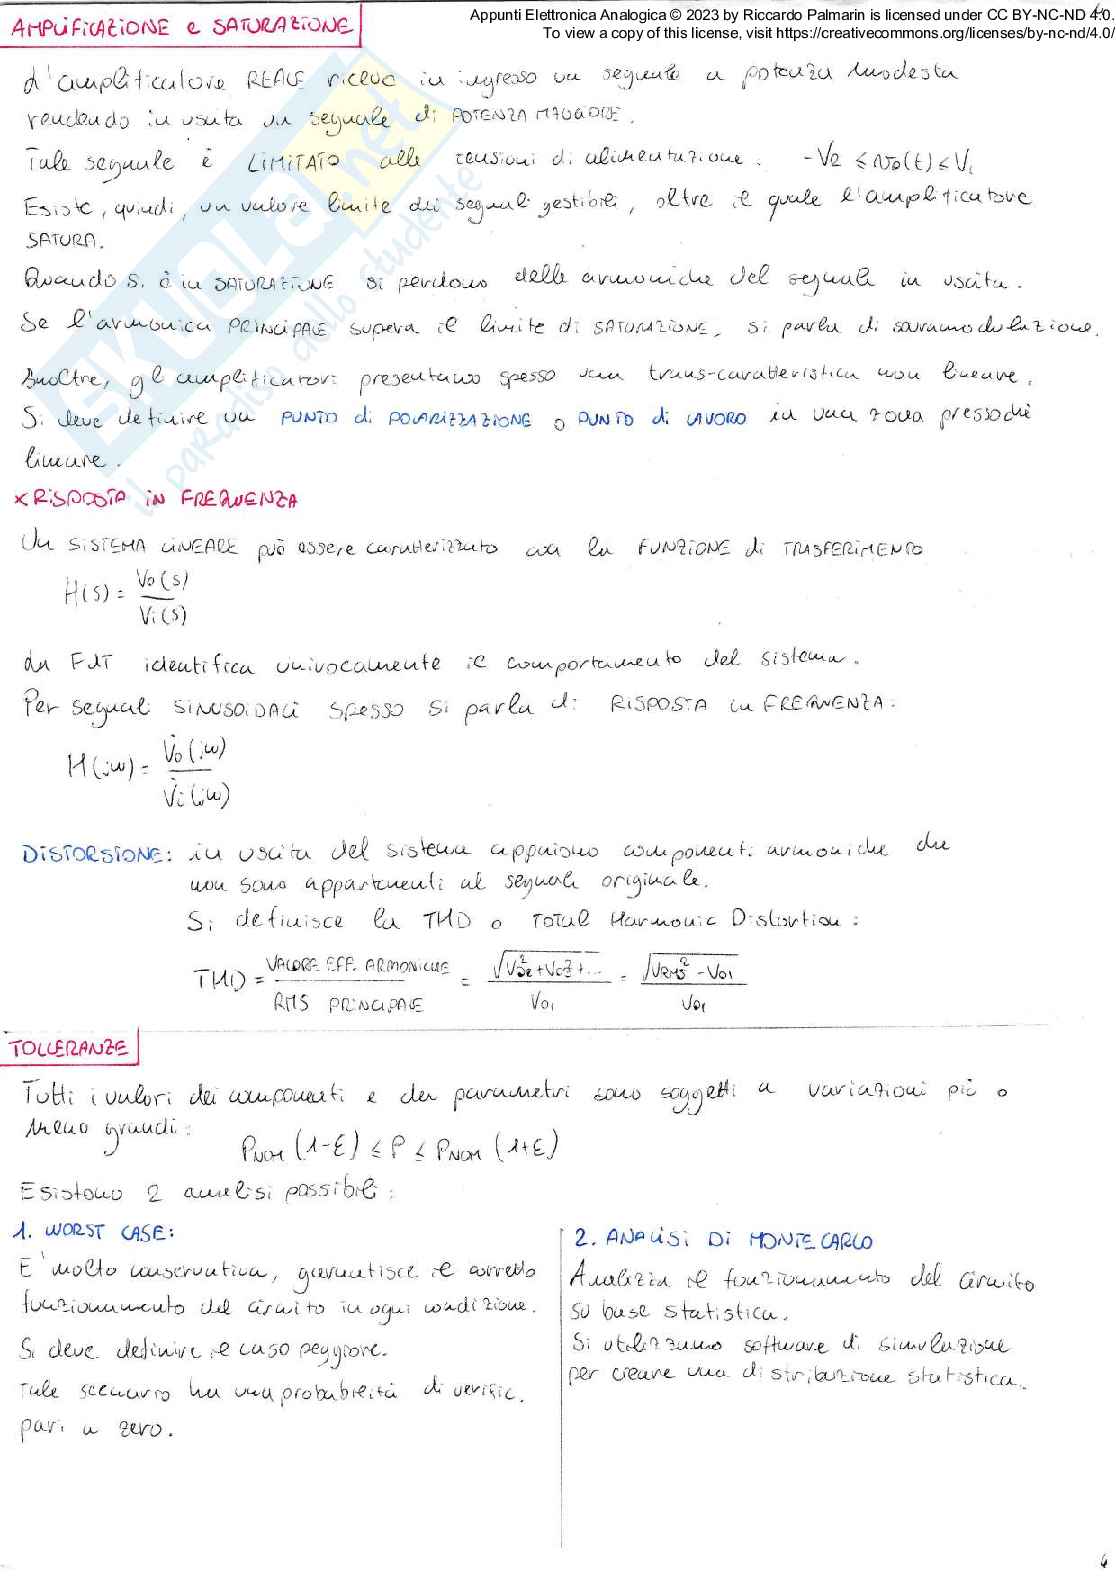 Appunti Elettronica Analogica © 2023 by Riccardo Palmarin is licensed under CC BY-NC-ND 4.0.
To view a copy of this license, visit https://creativecommons.org/licenses/by-nc-nd/4.0/
AMPLIFICAZIONE e SATURAZIONE
L'amplificatore REALE riceve in ingresso un segnale a potenza modesta
rendendo in uscita un segnale di POTENZA MAGGIORE.
Tale segnale è LIMITATO alle tensioni di alimentazione. -V2 ≤ vo(t) ≤ V1
Esiste, quindi, un valore limite dei segnali gestibili, oltre il quale l'amplificatore
SATURA.
Quando si è in SATURAZIONE si perdono delle armoniche del segnale in uscita.
Se l'armonica PRINCIPALE supera il limite di SATURAZIONE, si parla di sovramodulazione.
Inoltre, gli amplificatori presentano spesso una trans-caratteristica non lineare.
Si deve definire un PUNTO di POLARIZZAZIONE o PUNTO di LAVORO in una zona pressoché
lineare.
SKUOLA.net
il paradiso dello studente
x RISPOSTA in FREQUENZA
Un SISTEMA LINEARE può essere caratterizzato con la FUNZIONE di TRASFERIMENTO
H(s) = Vo(s) / Vi(s)
La FdT identifica univocamente il comportamento del sistema.
Per segnali SINUSOIDALI spesso si parla di RISPOSTA in FREQUENZA:
H(jw) = V̇o(jw) / V̇i(jw)
DISTORSIONE: in uscita del sistema appaiono componenti armoniche che
non sono appartenenti al segnale originale.
Si definisce la THD o TOTAL Harmonic Distortion:
THD = VALORE EFF. ARMONICHE / RMS PRINCIPALE = √(Vo2² + Vo3² + ...) / Vo1 = √(VRMS² - Vo1) / Vo1
TOLLERANZE
Tutti i valori dei componenti e dei parametri sono soggetti a variazioni più o
meno grandi:
PNOM (1-ε) ≤ P ≤ PNOM (1+ε)
Esistono 2 analisi possibili:
1. WORST CASE:
E' molto conservativa, garantisce il corretto
funzionamento del circuito in ogni condizione.
Si deve definire il caso peggiore.
Tale scenario ha una probabilità di verific.
pari a zero.
2. ANALISI DI MONTECARLO
Analizza il funzionamento del circuito
su base statistica.
Si utilizzano software di simulazione
per creare una distribuzione statistica.